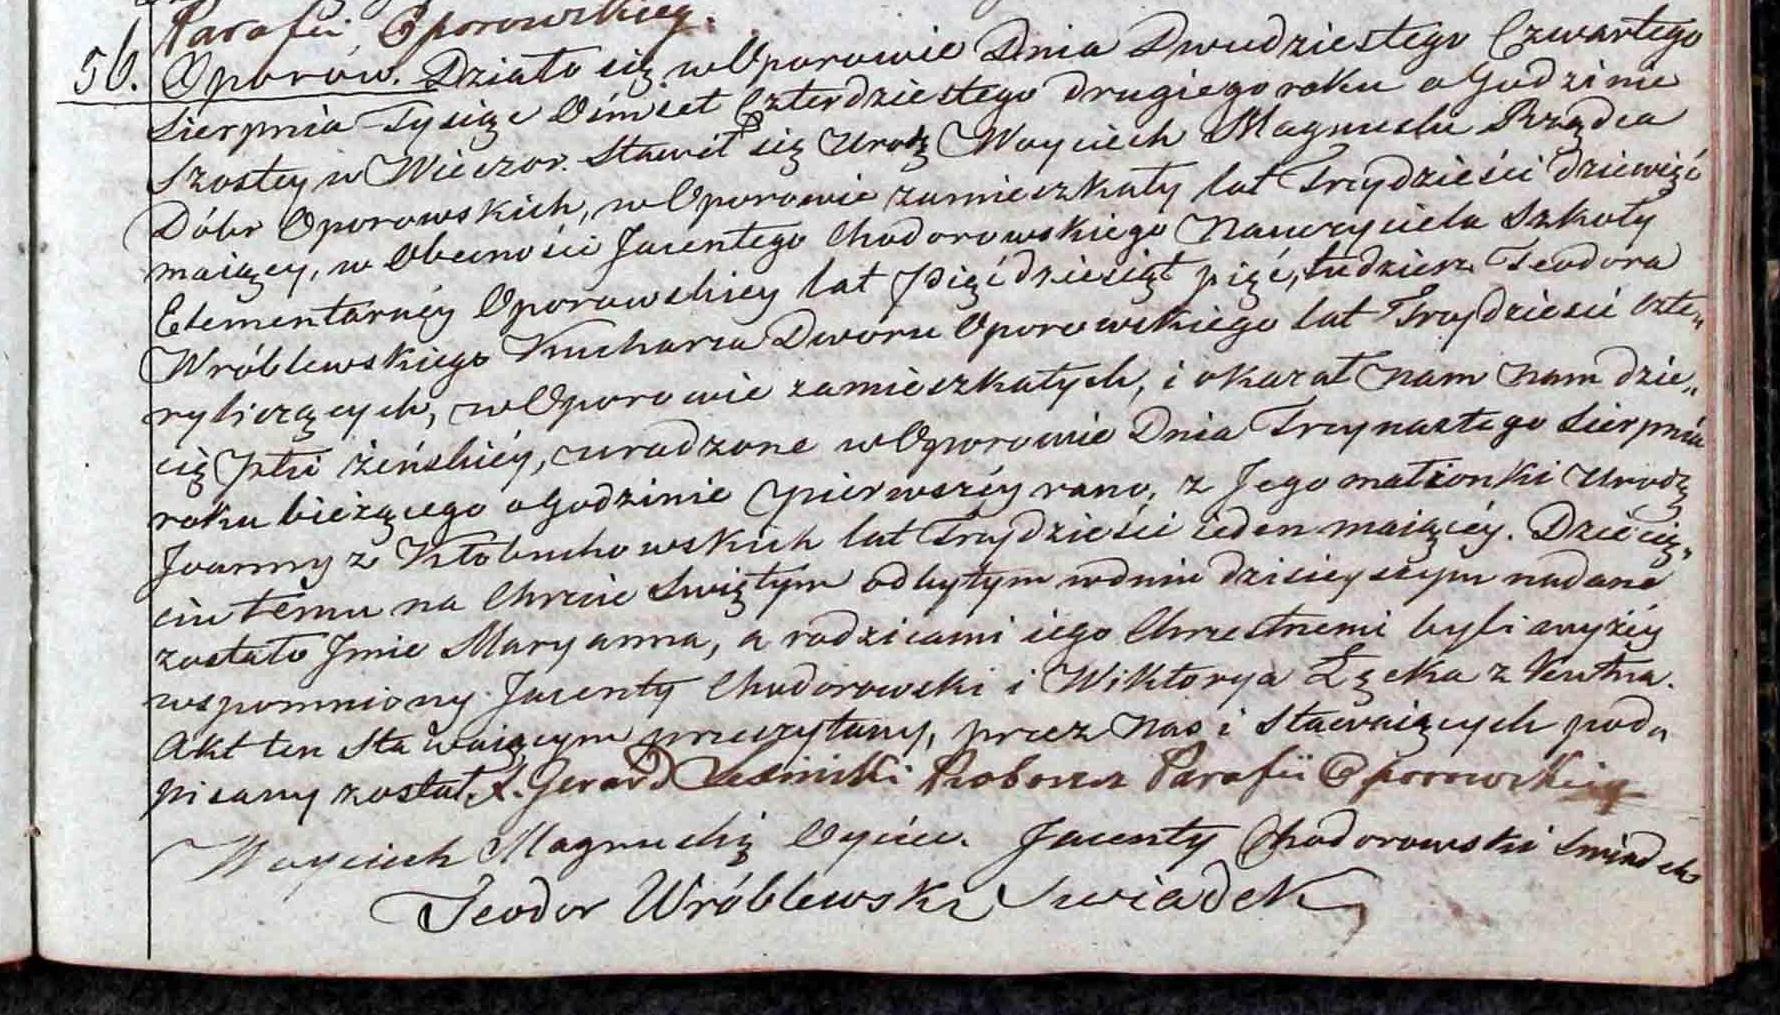 Parafii Oporowskiey.
56. Oporów. Działo się w Oporowie Dnia Dwudziestego Czwartego
Sierpnia Tysiąc Ośmset Czterdziestego drugiego roku o Godzinie
Szostey w Wieczor. Stawił się Urodz Woyciech Magnuski Rządca
Dóbr Oporowskich, w Oporowie zamieszkały lat Trzydzieści dziewięć
maiący, w Obecności Jacentego Chodorowskiego Nauczyciela Szkoły
Elementarnéy Oporowskiey lat Pięćdziesiąt pięć, tudziesz Teodora
Wróblewskiego Kucharza Dworu Oporowskiego lat Trzydzieści czte„
ry liczących, w Oporowie zamieszkałych, i okazał nam nam dzie„
cię płci żeńskiéy, urodzone w Oporowie Dnia Trzynastego Sierpnia
roku bieżącego o Godzinie pierwszéy rano, z Jego małżonki Urodz
Joanny z Kłobuchowskich lat Trzydzieści ieden maiącéy. Dziecię„
ciu temu na Chrzcie Swiętym odbytym w dniu dzisieyszym nadane
zostało Jmie Maryanna, a rodzicami iego Chrzestnemi byli wyżéy
wspomniony Jacenty Chodorowski i Wiktorya Łącka z Kutna.
Akt ten Stawaiącym przeczytany, przez Nas i Stawaiących pod„
pisany został. X. Gerard Lesinski Proboszcz Parafii Oporowskiey
Woyciech Magnuski Oyciec. Jacenty Chodorowski Swiadek
Teodor Wróblewski Swiadek